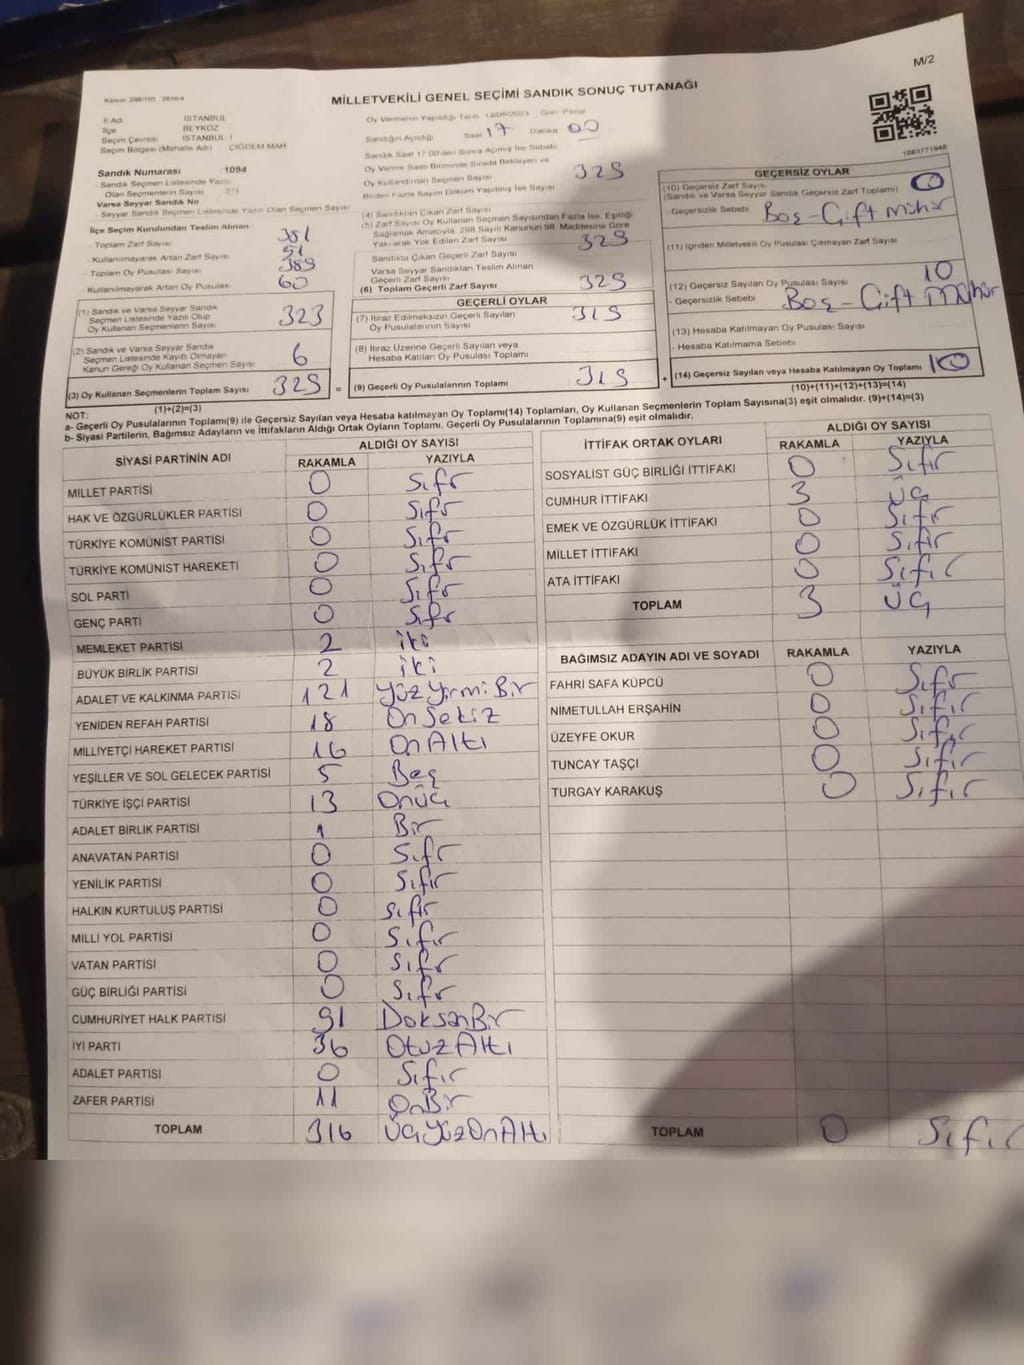 M/2
Kanun: 298/105 2839/4
MİLLETVEKİLİ GENEL SEÇİMİ SANDIK SONUÇ TUTANAĞI
1083771946
İl Adı : İSTANBUL
İlçe : BEYKOZ
Seçim Çevresi : İSTANBUL 1
Seçim Bölgesi (Mahalle Adı) : ÇİĞDEM MAH.
Sandık Numarası : 1094
- Sandık Seçmen Listesinde Yazılı
Olan Seçmenlerin Sayısı
Varsa Seyyar Sandık No
- Seyyar Sandık Seçmen Listesinde Yazılı Olan Seçmen Sayısı
İlçe Seçim Kurulundan Teslim Alınan :
- Toplam Zarf Sayısı : 381
- Kullanılmayarak Artan Zarf Sayısı : 51
- Toplam Oy Pusulası Sayısı : 389
- Kullanılmayarak Artan Oy Pusulası : 60
(1) Sandık ve Varsa Seyyar Sandık
Seçmen Listesinde Yazılı Olup
Oy Kullanan Seçmenlerin Sayısı 323
(2) Sandık ve Varsa Seyyar Sandık
Seçmen Listesinde Kayıtlı Olmayan
Kanun Gereği Oy Kullanan Seçmen Sayısı 6
(3) Oy Kullanan Seçmenlerin Toplam Sayısı 329 =
(1)+(2)=(3)
Oy Vermenin Yapıldığı Tarih 14/05/2023 Gün Pazar
Sandığın Açıldığı Saat 17 Dakika 00
Sandık Saat 17:00'den Sonra Açılmış İse Sebebi
Oy Verme Saati Bitiminde Sırada Bekleyen ve
Oy Kullandırılan Seçmen Sayısı
Birden Fazla Sayım Döküm Yapılmış İse Sayısı
329
(4) Sandıktan Çıkan Zarf Sayısı
(5) Zarf Sayısı Oy Kullanan Seçmen Sayısından Fazla İse, Eşitliği
Sağlamak Amacıyla, 298 Sayılı Kanunun 98. Maddesine Göre
Yakılarak Yok Edilen Zarf Sayısı
329
Sandıkta Çıkan Geçerli Zarf Sayısı
Varsa Seyyar Sandıktan Teslim Alınan
Geçerli Zarf Sayısı
(6) Toplam Geçerli Zarf Sayısı 329
GEÇERLİ OYLAR
(7) İtiraz Edilmeksizin Geçerli Sayılan
Oy Pusulalarının Sayısı 319
(8) İtiraz Üzerine Geçerli Sayılan veya
Hesaba Katılan Oy Pusulası Toplamı
(9) Geçerli Oy Pusulalarının Toplamı 319 +
GEÇERSİZ OYLAR
(10) Geçersiz Zarf Sayısı 0
(Sandık ve Varsa Seyyar Sandık Geçersiz Zarf Toplamı)
- Geçersizlik Sebebi Boş-Çift Mühür
(11) İçinden Milletvekili Oy Pusulası Çıkmayan Zarf Sayısı
(12) Geçersiz Sayılan Oy Pusulası Sayısı 10
- Geçersizlik Sebebi Boş-Çift Mühür
(13) Hesaba Katılmayan Oy Pusulası Sayısı
- Hesaba Katılmama Sebebi
(14) Geçersiz Sayılan veya Hesaba Katılmayan Oy Toplamı 10
(10)+(11)+(12)+(13)=(14)
NOT:
a- Geçerli Oy Pusulalarının Toplamı(9) ile Geçersiz Sayılan veya Hesaba katılmayan Oy Toplamı(14) Toplamları, Oy Kullanan Seçmenlerin Toplam Sayısına(3) eşit olmalıdır. (9)+(14)=(3)
b- Siyasi Partilerin, Bağımsız Adayların ve İttifakların Aldığı Ortak Oyların Toplamı, Geçerli Oy Pusulalarının Toplamına(9) eşit olmalıdır.
SİYASİ PARTİNİN ADI ALDIĞI OY SAYISI
RAKAMLA YAZIYLA
MİLLET PARTİSİ 0 Sıfr
HAK VE ÖZGÜRLÜKLER PARTİSİ 0 Sıfr
TÜRKİYE KOMÜNİST PARTİSİ 0 Sıfr
TÜRKİYE KOMÜNİST HAREKETİ 0 Sıfr
SOL PARTİ 0 Sıfr
GENÇ PARTİ 0 Sıfr
MEMLEKET PARTİSİ 2 iki
BÜYÜK BİRLİK PARTİSİ 2 iki
ADALET VE KALKINMA PARTİSİ 121 YüzYirmiBir
YENİDEN REFAH PARTİSİ 18 OnSekiz
MİLLİYETÇİ HAREKET PARTİSİ 16 OnAltı
YEŞİLLER VE SOL GELECEK PARTİSİ 5 Beş
TÜRKİYE İŞÇİ PARTİSİ 13 Onüç
ADALET BİRLİK PARTİSİ 1 Bir
ANAVATAN PARTİSİ 0 Sıfr
YENİLİK PARTİSİ 0 Sıfır
HALKIN KURTULUŞ PARTİSİ 0 sıfır
MİLLİ YOL PARTİSİ 0 Sıfır
VATAN PARTİSİ 0 Sıfr
GÜÇ BİRLİĞİ PARTİSİ 0 Sıfr
CUMHURİYET HALK PARTİSİ 91 DoksanBir
İYİ PARTİ 36 OtuzAltı
ADALET PARTİSİ 0 Sıfır
ZAFER PARTİSİ 11 OnBir
TOPLAM 316 ÜçYüzOnAltı
İTTİFAK ORTAK OYLARI ALDIĞI OY SAYISI
RAKAMLA YAZIYLA
SOSYALİST GÜÇ BİRLİĞİ İTTİFAKI 0 Sıfır
CUMHUR İTTİFAKI 3 üç
EMEK VE ÖZGÜRLÜK İTTİFAKI 0 Sıfır
MİLLET İTTİFAKI 0 Sıfır
ATA İTTİFAKI 0 Sıfır
TOPLAM 3 üç
BAĞIMSIZ ADAYIN ADI VE SOYADI RAKAMLA YAZIYLA
FAHRİ SAFA KÜPCÜ 0 Sıfır
NİMETULLAH ERŞAHİN 0 Sıfır
ÜZEYFE OKUR 0 Sıfır
TUNCAY TAŞÇI 0 Sıfır
TURGAY KARAKUŞ 0 Sıfır
TOPLAM 0 Sıfır